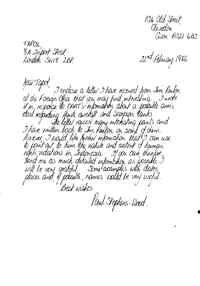 126 Old Street
Clevedon
Avon BS21 6BW
TAPOL
8A Treport Street
London SW18 2BP
22nd February 1986
Dear Tapol
I enclose a letter I have received from Tim Renton
at the Foreign Office that you may find interesting. I wrote
it in response to information about a possible arms
deal regarding tanks, aircraft and weapons.
The letter raises many interesting points and
I have written back to Tim Renton on some of them.
However, I would like further information that I can use
to point out to him the nature and extent of human
rights violations in Indonesia. If you can therefore
send me as much detailed information as possible I
will be very grateful. Some examples with dates,
places and if possible, names would be very useful.
Best wishes
Paul Stephens-Wood